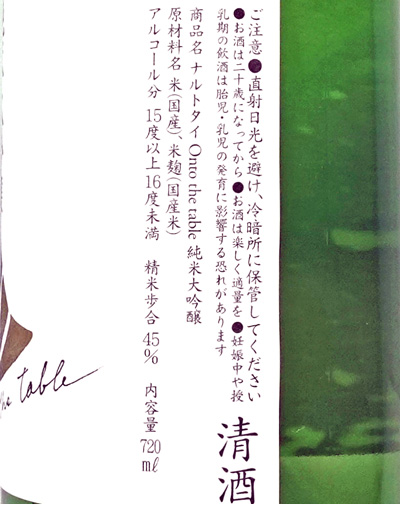 ご注意●直射日光を避け、冷暗所に保管してください
●お酒は二十歳になってから●お酒は楽しく適量を●妊娠中や授
乳期の飲酒は胎児・乳児の発育に影響する恐れがあります
清酒
商品名 ナルトタイ Onto the table 純米大吟醸
原材料名 米(国産)、米麹(国産米)
アルコール分 15度以上16度未満 精米歩合 45% 内容量 720ml
the table